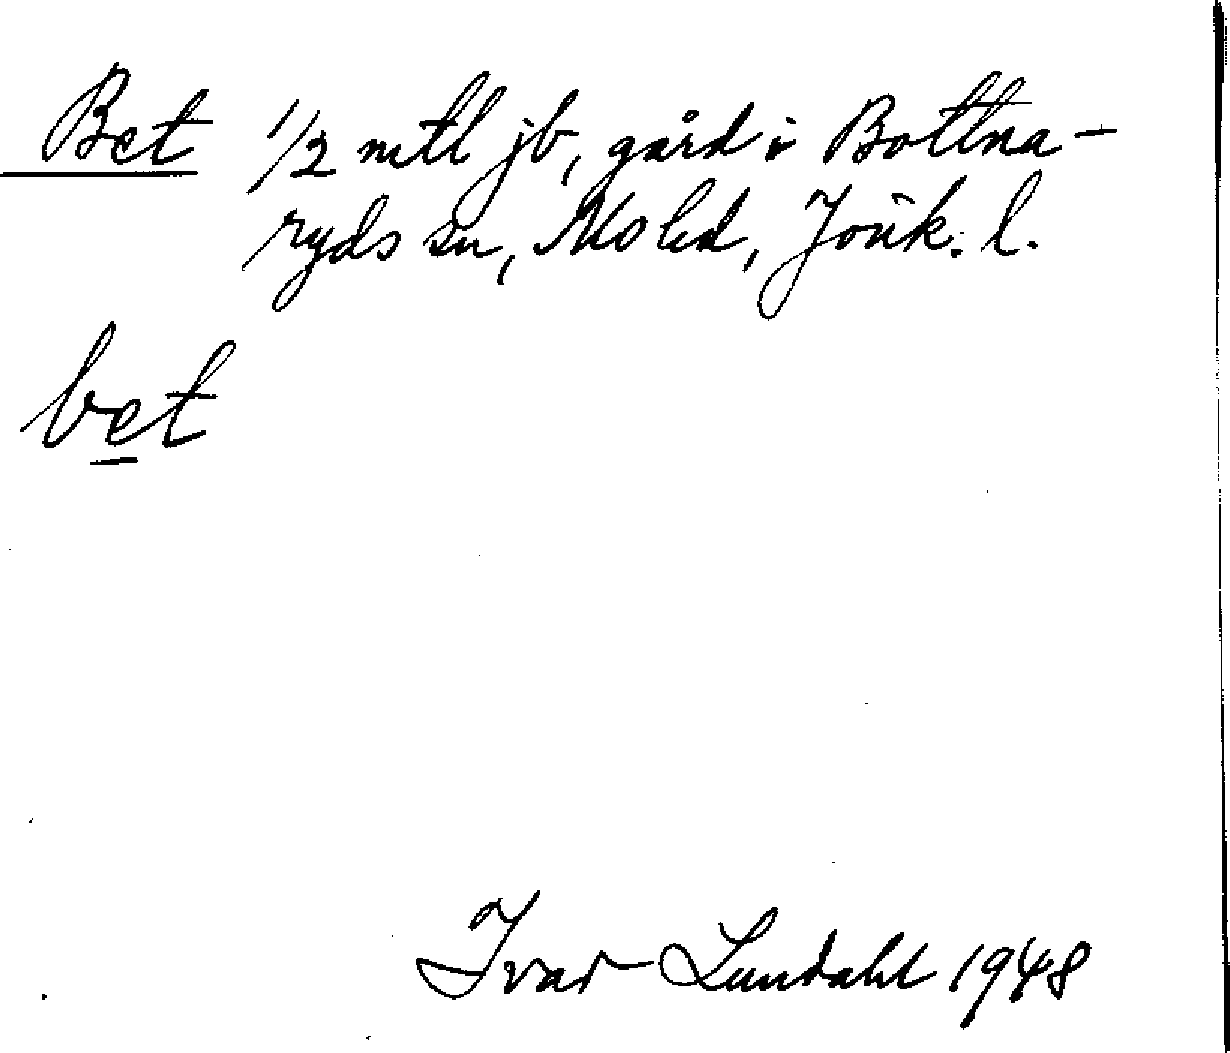 Bet 1/2 mtl jb, gård i Bottna-
ryds sn, Mo hd, Jönk. l.
bet
Ivar Lundahl 1948